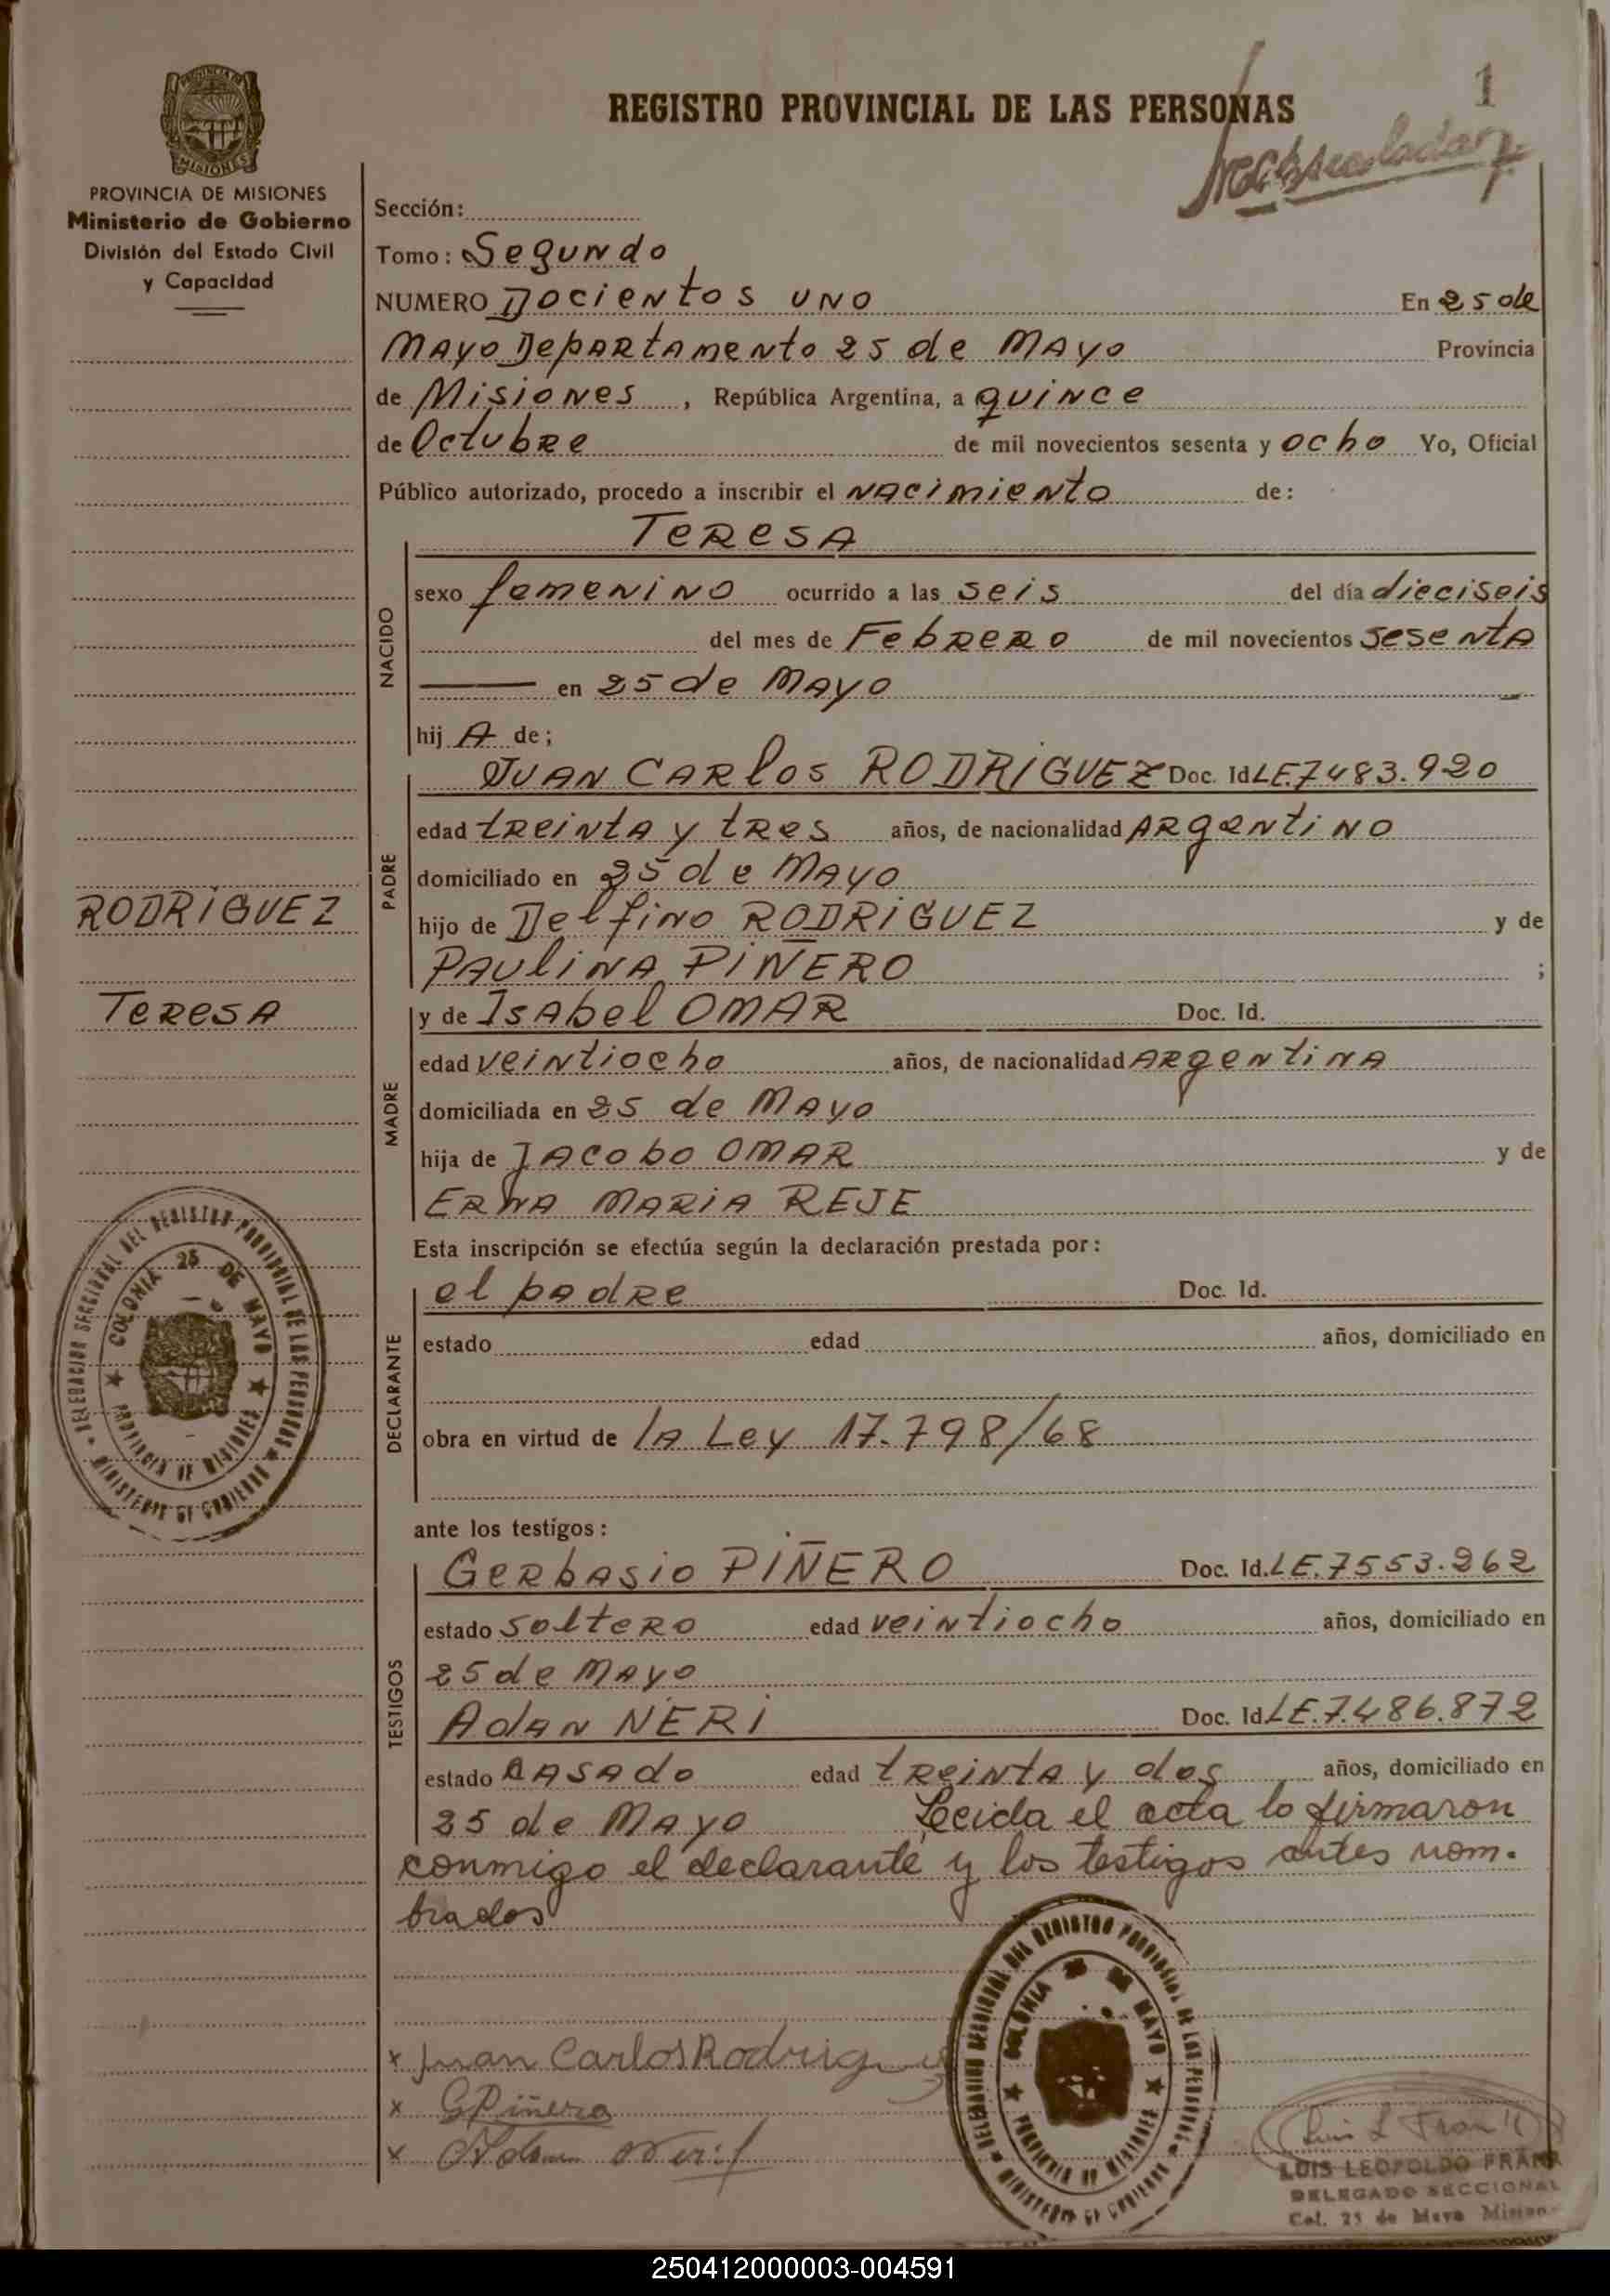 REGISTRO PROVINCIAL DE LAS PERSONAS
1
PROVINCIA DE MISIONES
Ministerio de Gobierno
División del Estado Civil
y Capacidad
Sección:
Tomo: Segundo
NUMERO Docientos uno En 25 de
Mayo Departamento 25 de Mayo Provincia
de Misiones, República Argentina, a quince
de Octubre de mil novecientos sesenta y ocho Yo, Oficial
Público autorizado, procedo a inscribir el nacimiento de:
NACIDO
Teresa
sexo femenino ocurrido a las seis del día dieciseis
del mes de Febrero de mil novecientos sesenta
en 25 de Mayo
hija de;
PADRE
Juan Carlos RODRIGUEZ Doc. Id LE.7483.920
edad treinta y tres años, de nacionalidad Argentino
domiciliado en 25 de Mayo
hijo de Delfino RODRIGUEZ y de
Paulina PIÑERO ;
RODRIGUEZ
Teresa
MADRE
y de Isabel OMAR Doc. Id.
edad veintiocho años, de nacionalidad Argentina
domiciliada en 25 de Mayo
hija de Jacobo OMAR y de
Erna Maria REJE
Esta inscripción se efectúa según la declaración prestada por:
DECLARANTE
el padre Doc. Id.
estado edad años, domiciliado en
obra en virtud de la Ley 17.798/68
DELEGACION SECCIONAL DEL REGISTRO PROVINCIAL DE LAS PERSONAS
COLONIA 25 DE MAYO
PROVINCIA DE MISIONES
MINISTERIO DE GOBIERNO
ante los testigos:
TESTIGOS
Gerbasio PIÑERO Doc. Id. LE.7553.262
estado soltero edad veintiocho años, domiciliado en
25 de Mayo
Adan NERI Doc. Id. LE.7.486.872
estado casado edad treinta y dos años, domiciliado en
25 de Mayo Leeida el acta lo firmaron
conmigo el declarante y los testigos antes nom-
brados
x Juan Carlos Rodriguez
x G Piñero
x Adan Neri
DELEGACION SECCIONAL DEL REGISTRO PROVINCIAL DE LAS PERSONAS
COLONIA 25 DE MAYO
PROVINCIA DE MISIONES
MINISTERIO DE GOBIERNO
LUIS LEOPOLDO
DELEGADO SECCIONAL
Col. 25 de Mayo
250412000003-004591